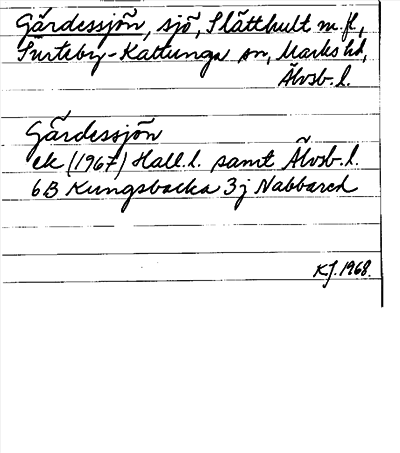 Gärdessjön, sjö, Slätthult m.fl,
Surteby-Kattunga sn, Marks hd,
Älvsb. l.
Gärdessjön
ek (1967) Hall. l. samt Älvsb. l.
6B Kungsbacka 3j Nabbared
KJ. 1968.